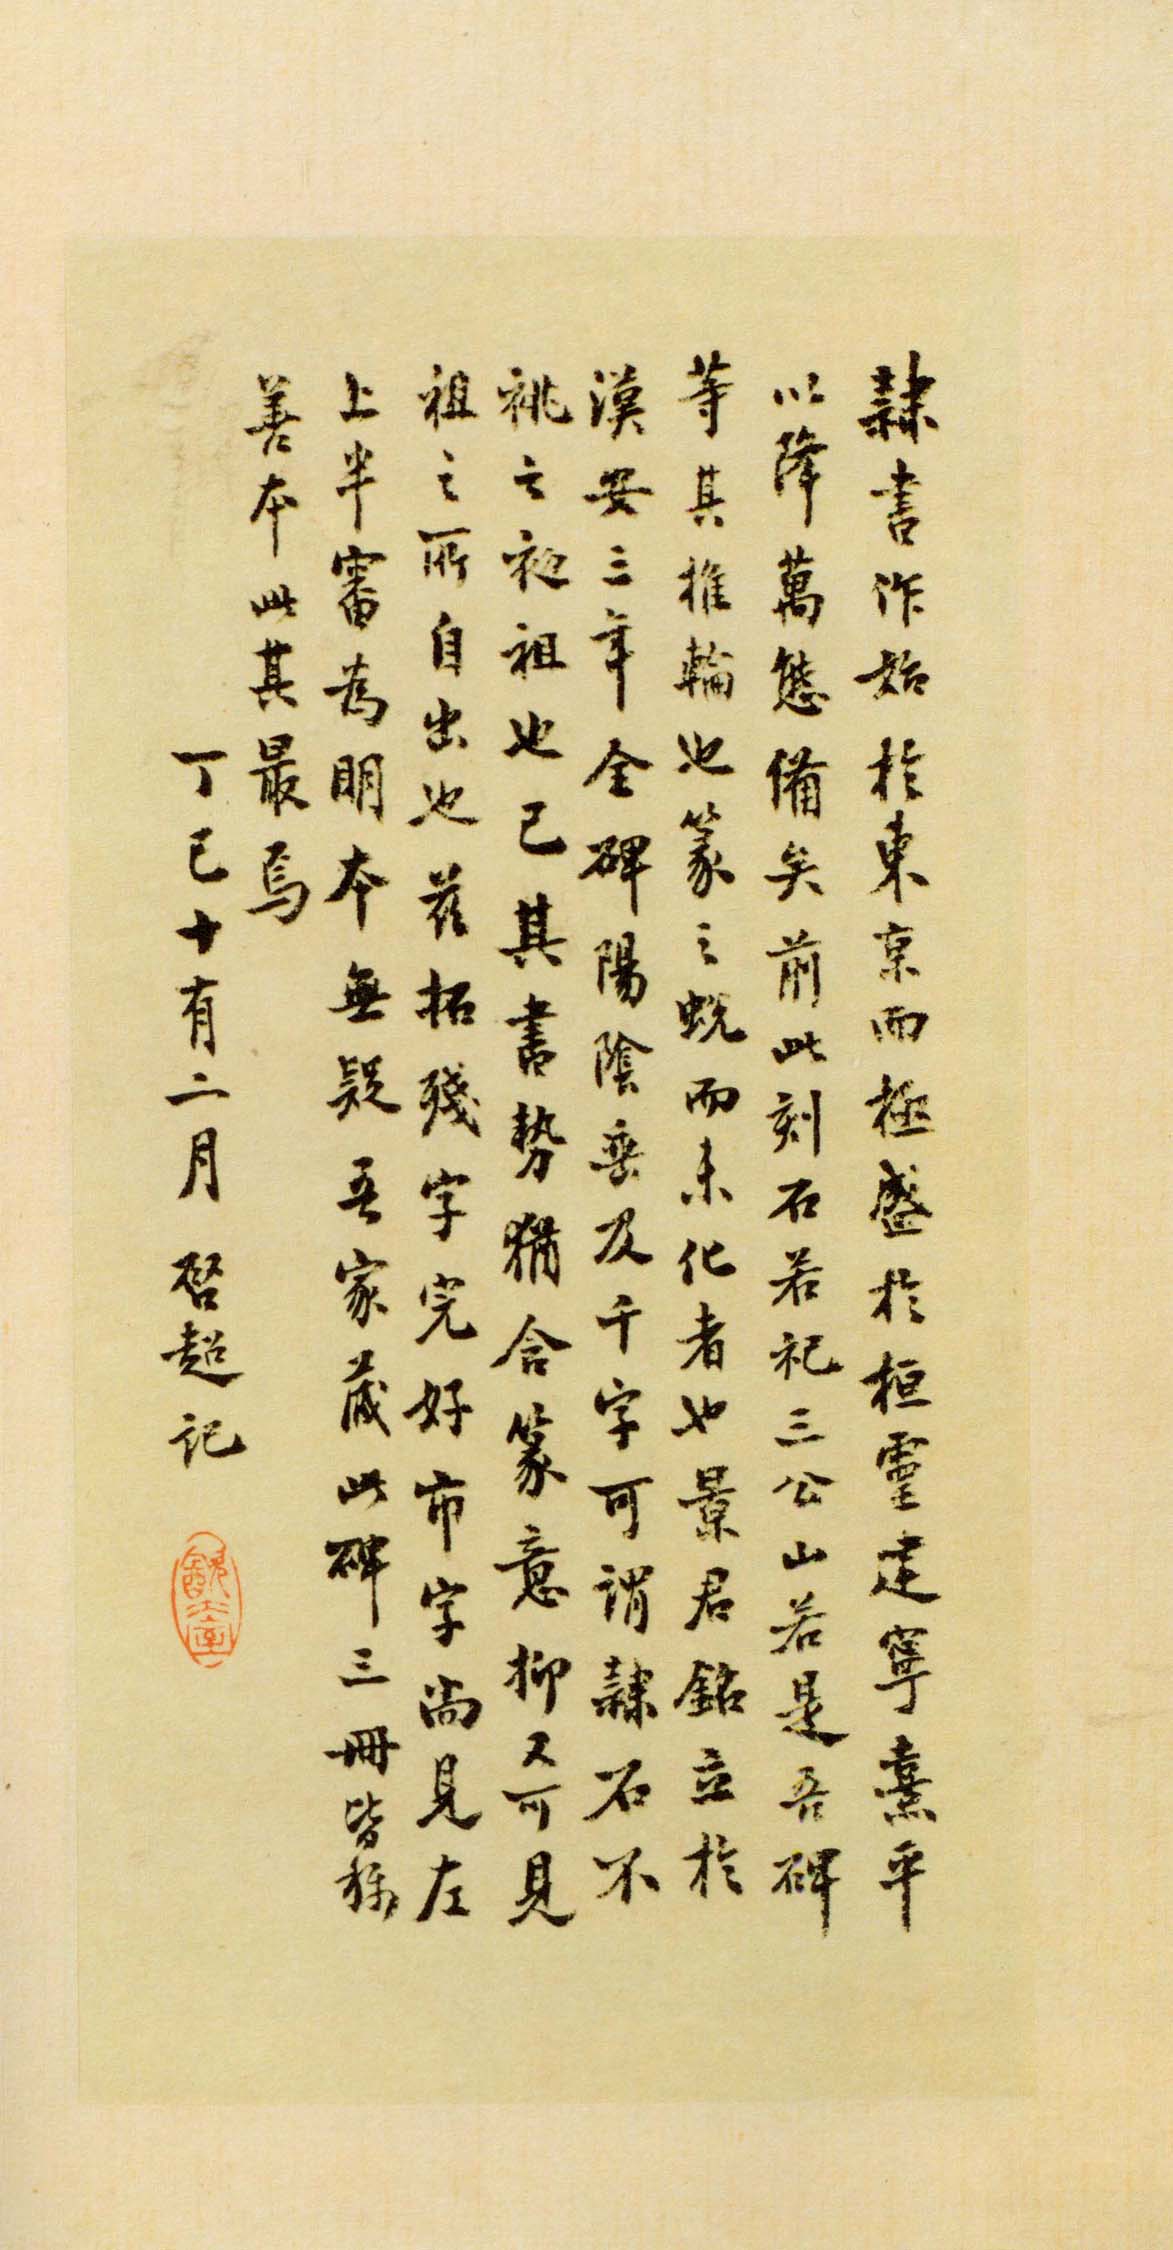 隸書作始於東京而極盛於桓靈建寧熹平
以降萬態備矣前此刻石若祀三公山若是吾碑
等其推輪也篆之蛻而未化者也景君銘立於
漢安三年全碑陽陰垂及千字可謂隸石不
祧之初祖也已其書勢猶含篆意抑又可見
祖之所自出也茲拓殘字完好市字尚見左
上半審為明本無疑吾家藏此碑三冊皆稱
善本此其最焉
丁巳十有二月 啓超記
飲冰室